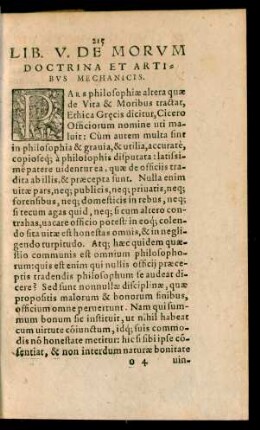 215
LIB. V. DE MORVM
DOCTRINA ET ARTI=
BVS MECHANICIS.
PArs philosophiæ altera quæ
de Vita & Moribus tractat,
Ethica Gręcis dicitur, Cicero
Officiorum nomine uti ma
luit: Cùm autem multa sint
in philosophia & grauia, & utilia, accuratè,
copioseq; à philosophis disputata : latissi=
mè patere uidentur ea, quæ de officiis tra
dita ab illis, & præcepta sunt. Nulla enim
uitæ pars, neq; publicis, neq; priuatis, neq;
forensibus, neq; domesticis in rebus, neq;
si tecum agas quid, neq; si cum altero con=
trahas, uacare officio potest: in eoq; colen=
do sita uitæ est honestas omnis, & in negli=
gendo turpitudo. Atq; hæc quidem quæ=
stio communis est omnium philosopho=
rum: quis est enim qui nullis officij præce=
ptis tradendis philosophum se audeat di
cere? Sed sunt nonnullæ disciplinæ, quæ
propositis malorum & bonorum finibus,
officium omne peruertunt. Nam qui sum=
mum bonum sic instituit, ut nihil habeat
cum uirtute cōiunctum, idq́; suis commo=
dis nō honestate metitur: hic si sibi ipse cō=
sentiat, & non interdum naturæ bonitate
o 4 uin-